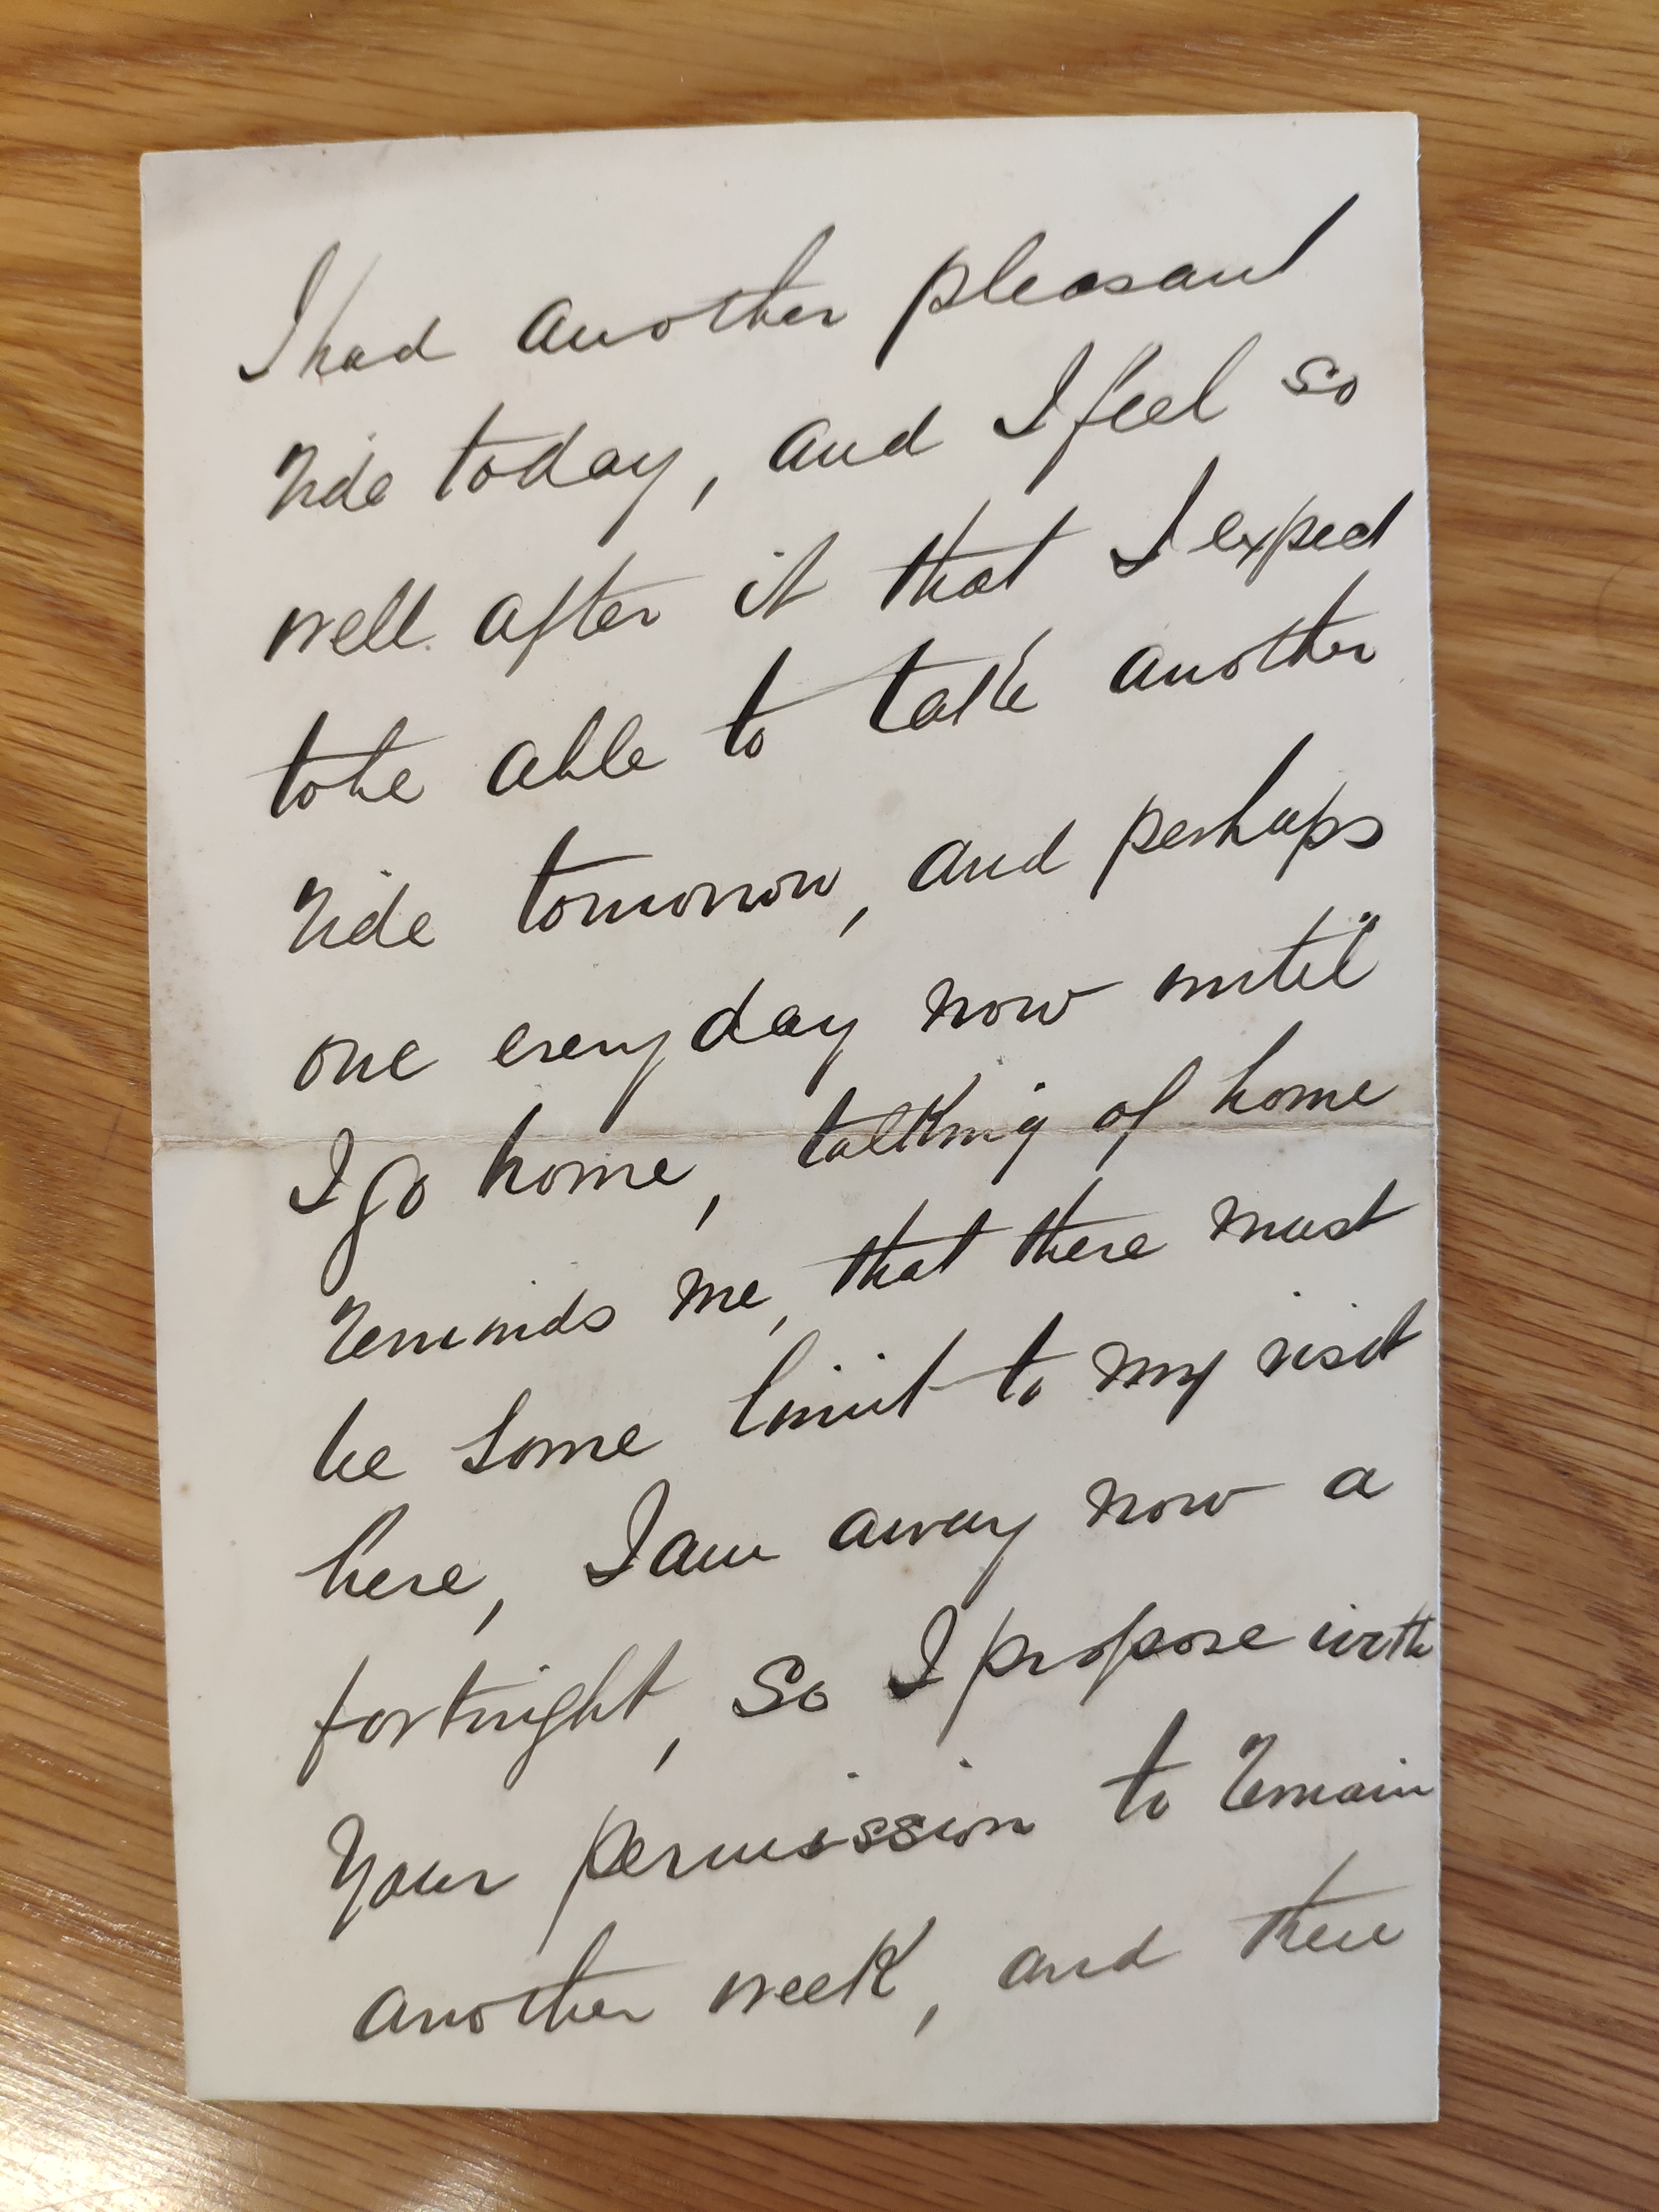 I had another pleasant
ride today, and I feel so
well after it that I expect
to be able to take another
ride tomorrow, and perhaps
one every day now until
I go home, talking of home
reminds me, that there must
be some limit to my visit
here, I am away now a
fortnight, so I propose with
your permission to remain
another week, and then